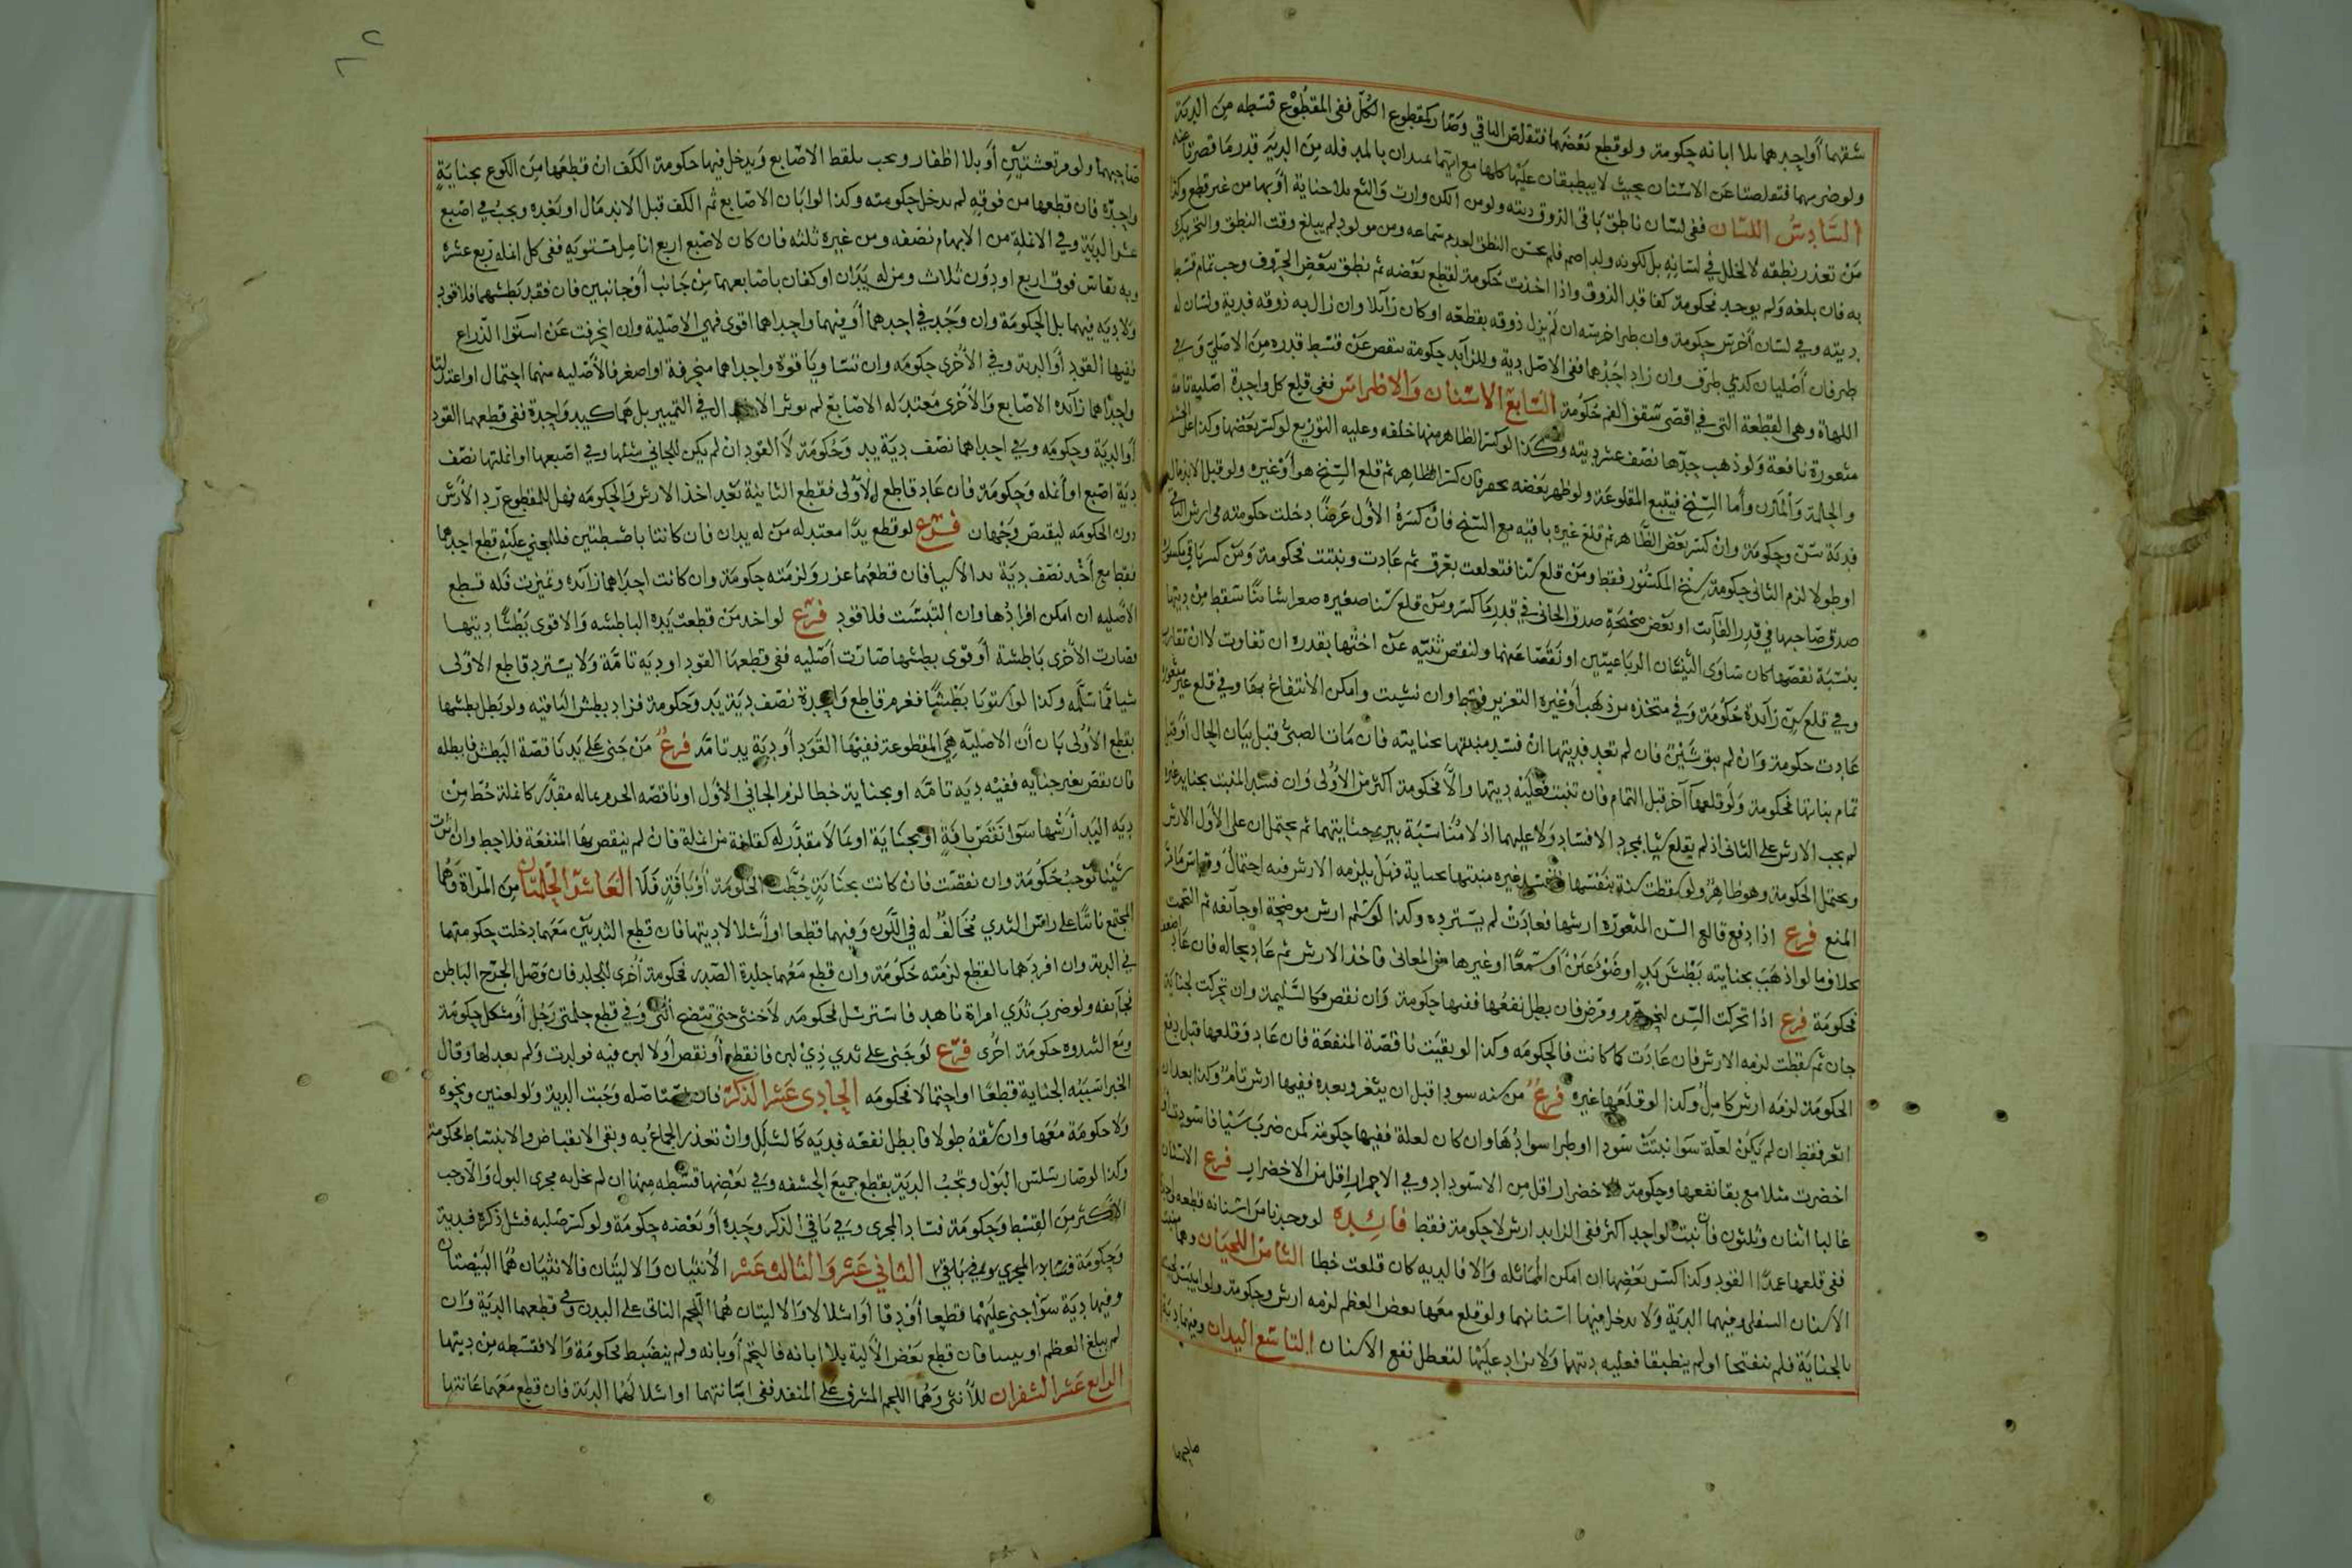 شقهما أو احدهما بلا ابانه حكومة ولو قطع بعضهما فتقلص الباقي وصار كمقطوع الكل ففي المقطوع قسطه من الدية
ولو ضربهما فتقلصتا عن الاسنان بحيث لا ينطبقان عليها
السادس اللسان ففي لسان ناطق باقي الذوق ديته ولو من الكن وارت والثغ بلا جناية أو بها من غير قطع وكذا
من تعذر نطقه لا لخلل في لسانه بل لكونه ولد اصم فلم يحسن النطق لعدم سماعه ومن مولود لم يبلغ وقت النطق والتحريك
به فان بلغه ولم يوجد فحكومة كفاقد الذوق واذا اخذت حكومة لقطع بعضه ثم نطق ببعض الحروف وجب تمام قسط
ديته وفي لسان أخرس حكومة وان طرا خرسه ان لم يزل ذوقه بقطعه او كان زائلا وان زال به ذوقه فدية ولسان له
طرفان أصليان كذي طرف وان زاد احدهما ففي الاصل دية وللزائد حكومة ينقص عن قسط قدره من الاصلي وفي
اللهاة وهي القطعة التي في اقصى سقف الفم حكومة السابع الاسنان والاضراس ففي قلع كل واحدة اصلية تامة
مثغورة نافعة ولو ذهب حدها نصف عشر ديته وكذا لو كسر الظاهر منها خلقه وعليه التوزيع لو كسر بعضها وكذا على الحشفة
والحلمة والمارن وأما السنخ فيتبع المقلوعة ولو ظهر بعضه بحفر فان كسر الظاهر ثم قلع السنخ هو أو غيره ولو قبل الاندمال
فدية سن وحكومة وان كسر بعض الظاهر ثم قلع غيره باقيه مع السنخ فان كسره الأول عرضا دخلت حكومته في ارش الباقي
او طولا لزم الثاني حكومة سنخ المكسور فقط ومن قلع سنا فتعلقت بعرق ثم عادت ونبتت فحكومة ومن كسر باقي مكسورة
صدق صاحبها في قدر الفائت او بعض صحيحة صدق الجاني في قدر ما كسر ومن قلع سنا صغيره
بنسبة نقصها كان ساوى الثنيتان الرباعيتين او نقصتا عنهما ولنقص ثنيته عن اختها بقدره ان تفاوت لا ان تقارب
وفي قلع سن زائدة حكومة وفي متخذه من ذهب أو غيره التعزير فقط وان نشبت وامكن الانتفاع بها وفي قلع غير مثغورة
عادت حكومة وان لم يبق شين فان لم تعد فديتها ان فسد منبتها بجنايته فان مات الصبي قبل بيان الحال او قبل
تمام نباتها فحكومة ولو قلعها آخر قبل التمام فان تنبت فعليه ديتها والا فحكومة اكثر من الأولى وان فسد المنبت بجناية غيره
لم يجب الارش على الثاني اذ لم يقلع سنا بمجرد الافساد ولا عليهما اذ لا مناسبة بين جنايتهما ثم يحتمل ان على الأول الارش
ويحتمل الحكومة وهو ظاهر ولو سقطت سنه بنفسها فافسد غيره منبتها بجناية فهل يلزمه الارش فيه احتمال وقياس ما مر
المنع فرع اذا دفع قالع السن المثغوره ارشها فعادت لم يسترده وكذا لو سلم ارش موضحة او جائفه ثم التحمت
بخلاف ما لو اذهب بجنايته بطش يد او ضوء عين أو سمعا او غيرها من المعاني فاخذ الارش ثم عاد بحاله فان عاد
فحكومة فرع اذا تحركت السن لنحو هرم ومرض فان بطل نفعها ففيها حكومة وان نقص فكالسليمة وان تحركت لجناية
جان ثم سقطت لزمه الارش فان عادت كما كانت فالحكومه وكذا لو بقيت ناقصة المنفعة فان عاد وقلعها قبل دفع
الحكومة لزمه ارش كامل وكذا لو قلعها غيره فرع من سنه سودا قبل ان يثغر وبعده ففيها ارش تام وكذا بعد ان
اثغر فقط ان لم يكن لعلة سوا نبتت سودا او طرا سوادها وان كان لعلة ففيها حكومة كمن ضرب سنا فاسودت او
اخضرت مثلا مع بقا نفعها وحكومة الاخضرار اقل من الاسوداد وفي الاحمرار اقل من الاخضرار فرع الاسنان
غالبا اثنان وثلثون فان نبت لواحد اكثر ففي الزايد ارش لا حكومة فقط فائدة لو وجدنا من اسنانه قطعه واحدة
ففي قلعها عمدا القود وكذا كسر بعضها ان امكن المماثله والا فالديه كان قلعت خطا الثامن اللحيان وهما منبت
الاسنان السفلى وفيهما الدية ولا يدخل فيها اسنانهما ولو قلع معها بعض العظم لزمه ارش وحكومة ولو
بالجناية فلم ينفتحا او لم ينطبقا فعليه ديتهما ولا يزاد عليها لتعطل نفع الاسنان التاسع اليدان وفيهما دية
صاحبهما
صاحبهما ولو مرتعشتين أو بلا اظفار ويجب بلقط الاصابع ويدخل فيها حكومة الكف ان قطعها من الكوع بجناية
واحدة فان قطعها من فوقه لم يدخل حكومته وكذا لو ابان الاصابع ثم الكف قبل الاندمال او بعده ويجب في اصبع
عشر الدية وفي الانملة من الابهام نصفه ومن غيره ثلثه فان كان لاصبع اربع انامل مستويه ففي كل انمله ربع عشره
وبه يقاس فوق اربع او دون ثلاث ومن له يدان او كفان باصابعهما من جانب أو جانبين فان فقد بطشهما فلا قود
ولا ديه فيهما بل الحكومة وان وجد في احدهما أو فيهما واحداهما اقوى فهي الاصلية وان انحرفت عن استوا الذراع
ففيها القود أو الدية وفي الأخرى حكومه وان تساويا قوة واحداهما منحرفة او اصغر فالأصليه منهما احتمال او اعتدلتا
واحداهما زائدة الاصابع والأخرى معتدله الاصابع لم يوثر في التمييز بل هما كيد واحدة ففي قطعهما القود
أو الدية وحكومه وفي احداهما نصف دية يد وحكومة لا القود ان لم يكن للجاني مثلها وفي اصبعها او انملتها نصف
دية اصبع او أنمله وحكومة فان عاد قاطع الأولى فقطع الثانية بعد اخذ الارش والحكومه فهل للمقطوع رد الأرش
دون الحكومه ليقتص وجهان فرع لو قطع يدا معتدله من له يدان فان كانتا باطشتين فللمجني عليه قطع احداهما
فقط مع أخذ نصف دية فان قطعهما عزر ولزمته حكومة وان كانت احداهما زائده وتميزت فله قطع
الأصليه ان امكن افرادها وان التبست فلا قود فرع لو اخذ من قطعت يده الباطشه والاقوى بطشا ديتها
فصارت الأخرى باطشة أو قوى بطشها صارت أصليه ففي قطعها القود او ديه تامة ولا يسترد قاطع الاولى
شيا مما سلمه وكذا لو استويا بطشا فغرم قاطع واحدة نصف دية يد وحكومة فزاد بطش الباقيه ولو بطل بطشها
بقطع الأولى بان أن الاصلية هي المقطوعة ففيها القود أو دية يد تامة فرع من جنى على يد ناقصة البطش فابطله
فان نقص بغير جنايه ففيه ديه تامه او بجناية خطا لزم الجاني الأول او ناقصه الجرم بماله مقدر كانملة حط من
ديه اليد أرشها سوا نقص بافة او بجناية او بما لا مقدر له كفلقة من انملة فان لم ينقص بها المنفعة فلا حط وان اثرت
شينا توجب حكومة وان نقصت فان كانت بجناية حطت الحكومة أو بافة فلا العاشر الحلمتان من المراة وهما
المجتمع ناتئا على راس الثدي مخالف له في اللون وفيهما قطعا او أشلالا ديتها فان قطع الثديين معهما دخلت حكومتهما
في الدية وان افردهما بالقطع لزمته حكومة وان قطع معهما جلدة الصدر فحكومة أخرى للجلد فان وصل الجرح الباطن
فجائفه ولو ضرب ثدي امراة ناهد فاسترسل فحكومه لا خنثى حتى تتضح انثى وفي قطع حلمتي رجل أو مشكل حكومة
ومع الثندوه حكومة اخرى فرع لو جنى على ثدي ذي لبن فانقطع أو نقص أو لا لبن فيه فولدت ولم يعد لها وقال
الخبراسببه الجناية قطعا او احتمالا فحكومه الحادي عشر الذكر فان وجبت الدية ولو لعنين ونحوه
ولا حكومة معها وان شقه طولا فابطل نفعه فديه كالشلل وان تعذر الجماع به وبقي الانقباض والانبساط فحكومة
وكذا لو صار سلس البول وتجب الدية بقطع جميع الحشفه وفي بعضها قسطه منها ان لم يخل به مجرى البول والا وجب
الاكثر من القسط وحكومة فساد المجرى وفي باقي الذكر وحده أو بعضه حكومة ولو كسر صلبه فشل ذكره فدية
وحكومة الثاني عشر والثالث عشر الأنثيان والاليتان فالانثيان هما البيضتان
وفيها دية سوا جنى عليهما قطعا أو دقا أو اشلالا والاليتان هما اللحم الناتي على البدن وفي قطعهما الدية وان
لم يبلغ العظم فان قطع بعض الألية بلا ابانه فالتحم أو بانه ولم ينضبط فحكومة والا فقسطه من ديتها
الرابع عشر الشفران للأنثى وهما اللحم المشرف على المنفذ ففي ابانتهما او اشلالهما الدية فان قطع معهما عانتها